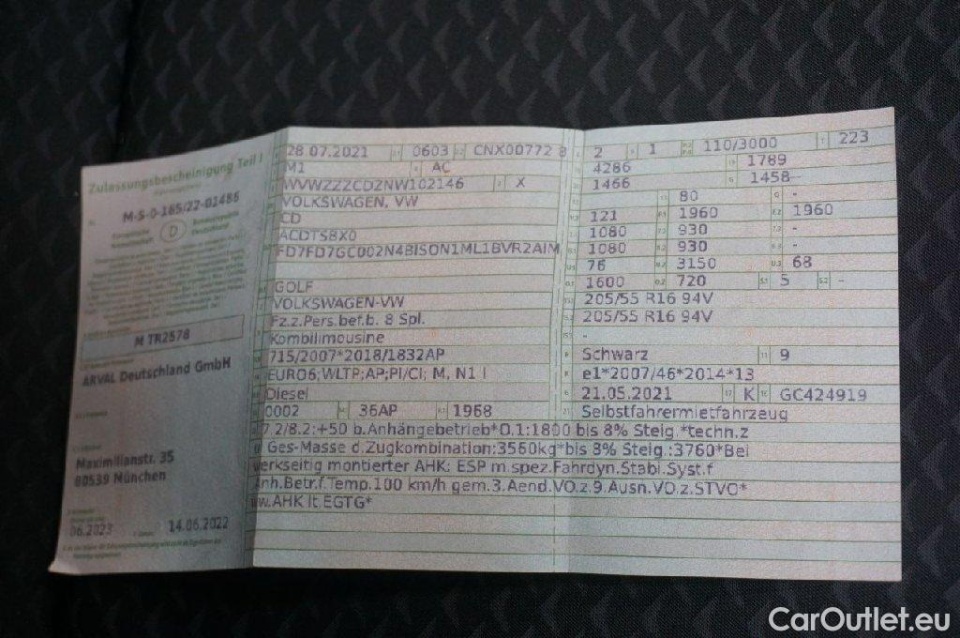 Zulassungsbescheinigung Teil I
M-S-0-165/22-01486
Europäische Gemeinschaft
D
Bundesrepublik Deutschland
M TR2578
ARVAL Deutschland GmbH
Maximilianstr. 35
80539 München
06.2023
14.06.2022
28.07.2021 0603 CNX00772 8
M1 AC
WVWZZZCDZNW102146 X
VOLKSWAGEN, VW
CD
ACDTSBX0
FD7FD7GC002N4BISON1ML1BVR2AIM
GOLF
VOLKSWAGEN-VW
Fz.z.Pers.bef.b. 8 Spl.
Kombilimousine
715/2007*2018/1832AP
EURO6;WLTP;AP;PI/CI; M, N1 I
Diesel
0002 36AP 1968
2 1 110/3000 223
4286 1789
1466 1458--
- 80 -
121 1960 1960
1080 930 -
1080 930 -
76 3150 68
1600 720 5 -
205/55 R16 94V
205/55 R16 94V
Schwarz 9
e1*2007/46*2014*13
21.05.2021 K GC424919
Selbstfahrermietfahrzeug
7.2/8.2:+50 b.Anhängebetrieb*O.1:1800 bis 8% Steig *techn.z
Ges-Masse d.Zugkombination:3560kg*bis 8% Steig.:3760*Bei
werkseitig montierter AHK: ESP m.spez.Fahrdyn.Stabi.Syst.f
Anh.Betr.f.Temp.100 km/h gem.3.Aend.VO.z.9.Ausn.VO.z.STVO*
ww.AHK lt.EGTG*
CarOutlet.eu